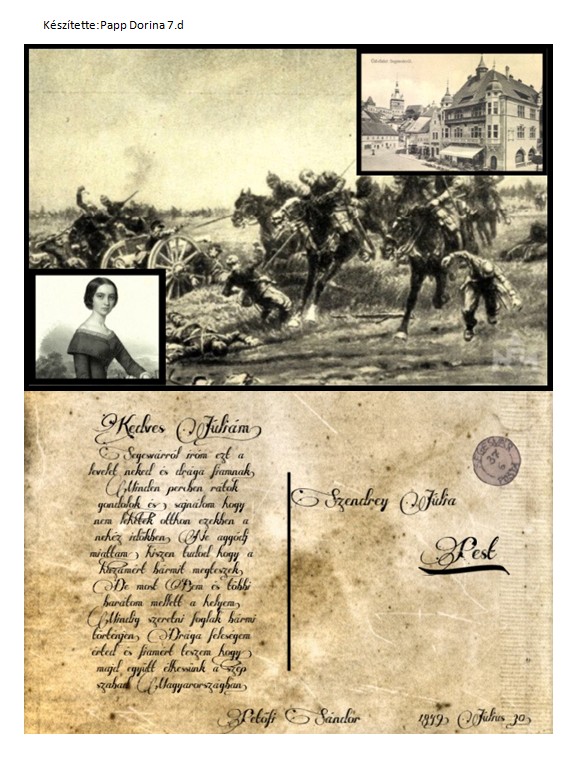 Készítette: Papp Dorina 7.d
Üdvözlet Segesvárról.
Kedves Júliám
Segesvárról írom ezt a
levelet neked és drága fiamnak
Minden percben rátok
gondolok és sajnálom hogy
nem lehetek otthon ezekben a
nehéz időkben Ne aggódj
miattam hiszen tudod hogy a
hazámért bármit megteszek
De most Bem és többi
barátom mellett a helyem
Mindig szeretni foglak bármi
történjen Drága feleségem
érted és fiamért teszem hogy
majd együtt élhessünk a szép
szabad Magyarországban
Szendrey Júlia
Pest
Petőfi Sándor
1849 Július 30